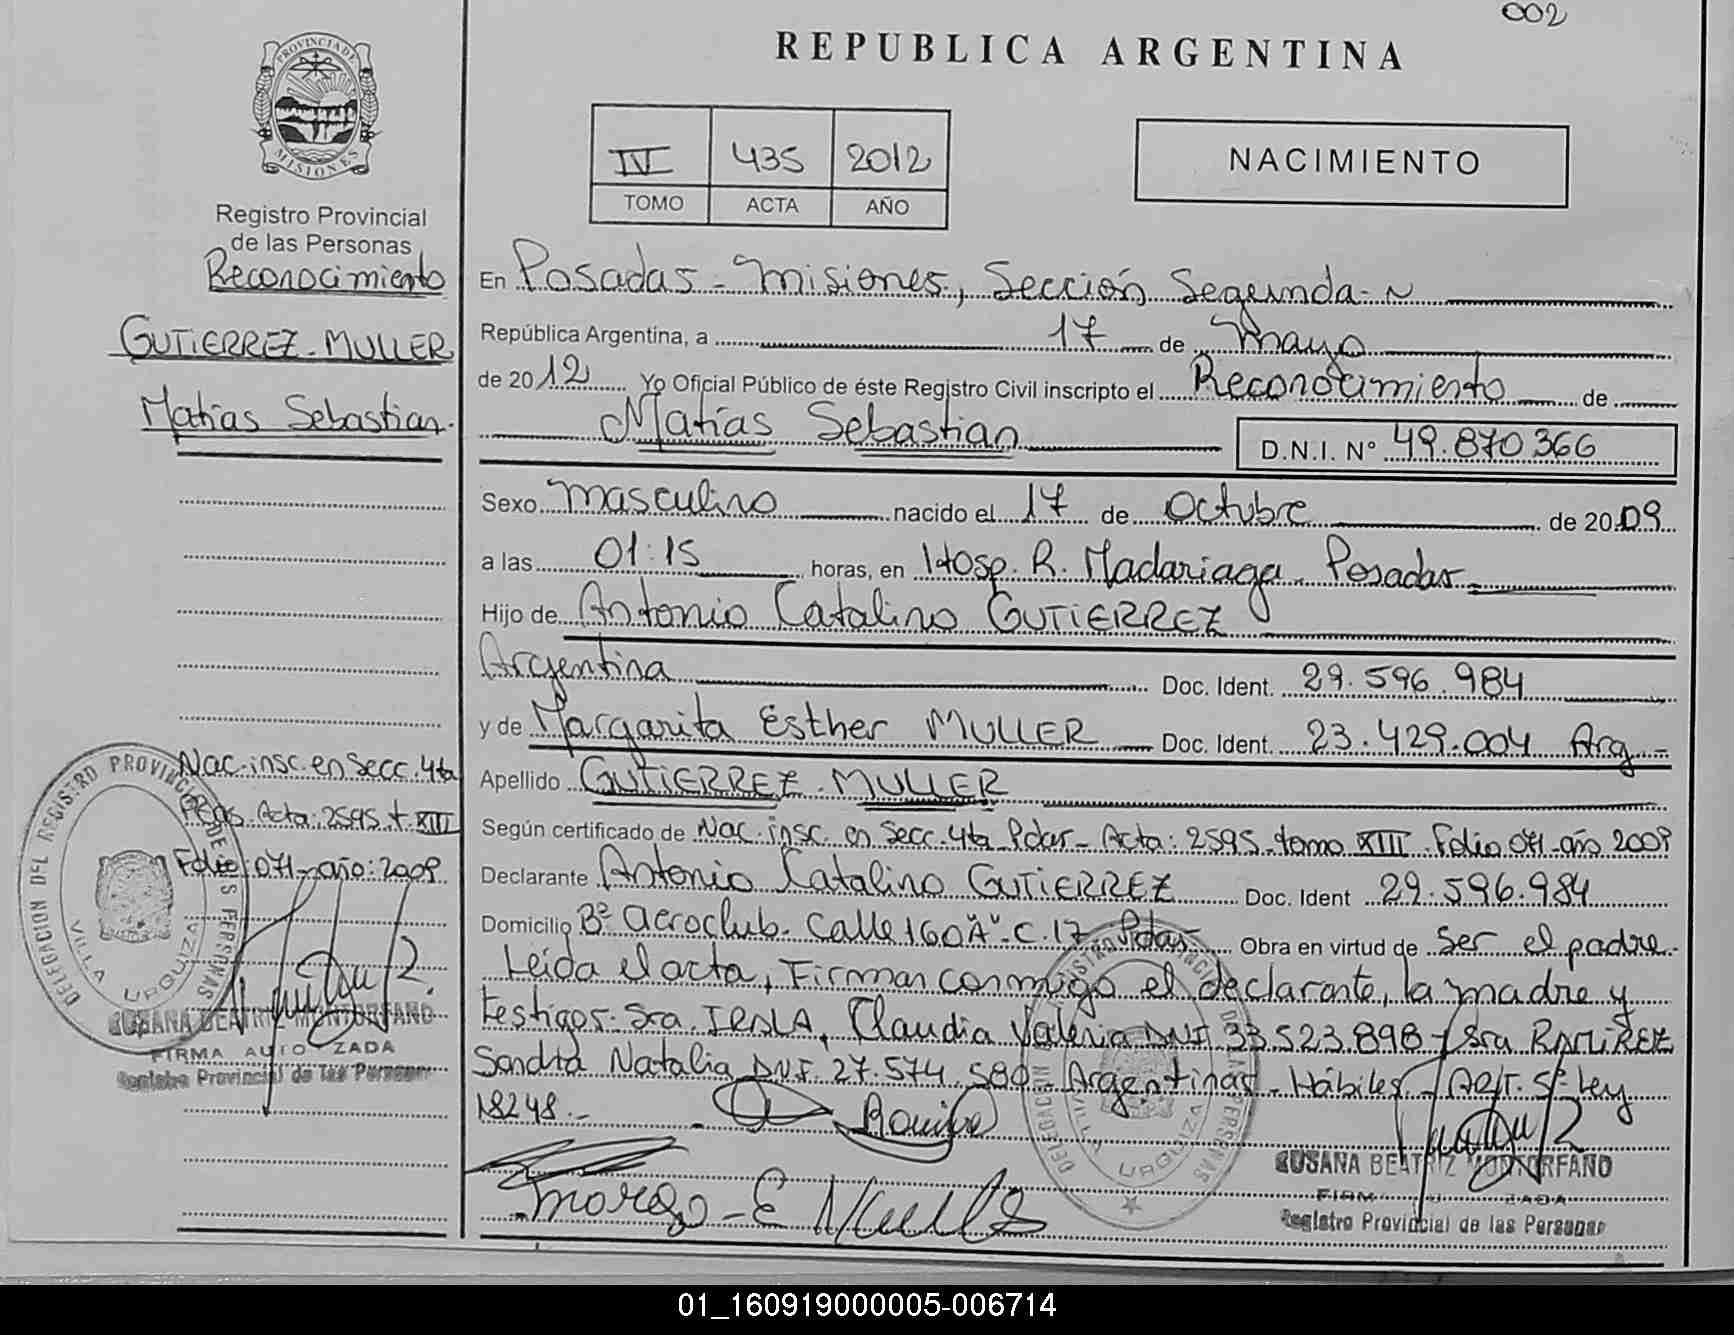 002
REPUBLICA ARGENTINA
PROVINCIA DE
MISIONES
IV 435 2012
TOMO ACTA AÑO
NACIMIENTO
Registro Provincial
de las Personas
Reconocimiento
GUTIERREZ - MULLER
Matías Sebastian.
En Posadas - Misiones, Sección Segunda
República Argentina, a 17 de Mayo
de 2012 Yo Oficial Público de éste Registro Civil inscripto el Reconocimiento de
Matías Sebastian D.N.I. Nº 49.870.366
Sexo Masculino nacido el 17 de Octubre de 2009
a las 01:15 horas, en Hosp. R. Madariaga. Posadas
Hijo de Antonio Catalino GUTIERREZ
Argentina Doc. Ident. 29.596.984
y de Margarita Esther MULLER Doc. Ident. 23.429.004 Arg.-
Apellido GUTIERREZ - MULLER
Según certificado de Nac. insc. en Secc. 4ta Pdas - Acta: 2595 tomo XIII Folio 071 año 2009
Declarante Antonio Catalino GUTIERREZ Doc. Ident 29.596.984
Domicilio Bº aeroclub. Calle 160 "A" - C. 17 - Pdas Obra en virtud de ser el padre.
Leída el acta, Firman conmigo el declarante, la madre y
testigos Sra. Claudia Valeria DNI 33.523.898 - Sra RAMIREZ
Sandra Natalia DNI 27.574.580 - Argentinas - Hábiles - Art. 5º Ley
18248.-
Nac. insc. en Secc. 4ta
Pdas. Acta: 2595 t. XIII
Folio: 071 - año: 2009
DELEGACION DEL REGISTRO PROVINCIAL DE LAS PERSONAS
VILLA URQUIZA
SUSANA BEATRIZ MONTORFANO
FIRMA AUTORIZADA
Registro Provincial de las Personas
DELEGACION DEL REGISTRO PROVINCIAL DE LAS PERSONAS
VILLA URQUIZA
SUSANA BEATRIZ MONTORFANO
FIRMA AUTORIZADA
Registro Provincial de las Personas
01_160919000005-006714